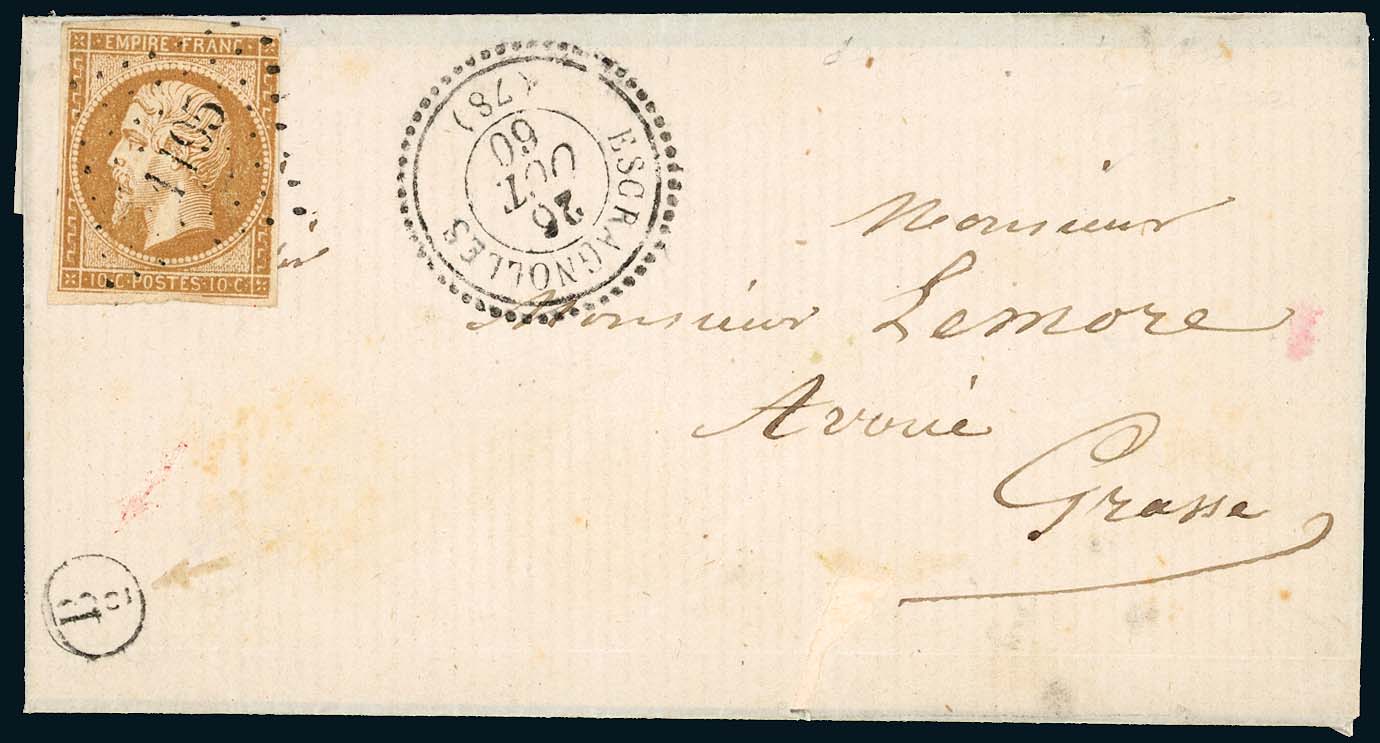 EMPIRE FRANC
1195
10·C·POSTES·10·C·
ESCRAGNOLLES
(78)
26
OCT
60
Monsieur
Monsieur Lemore
Avoué
Grasse